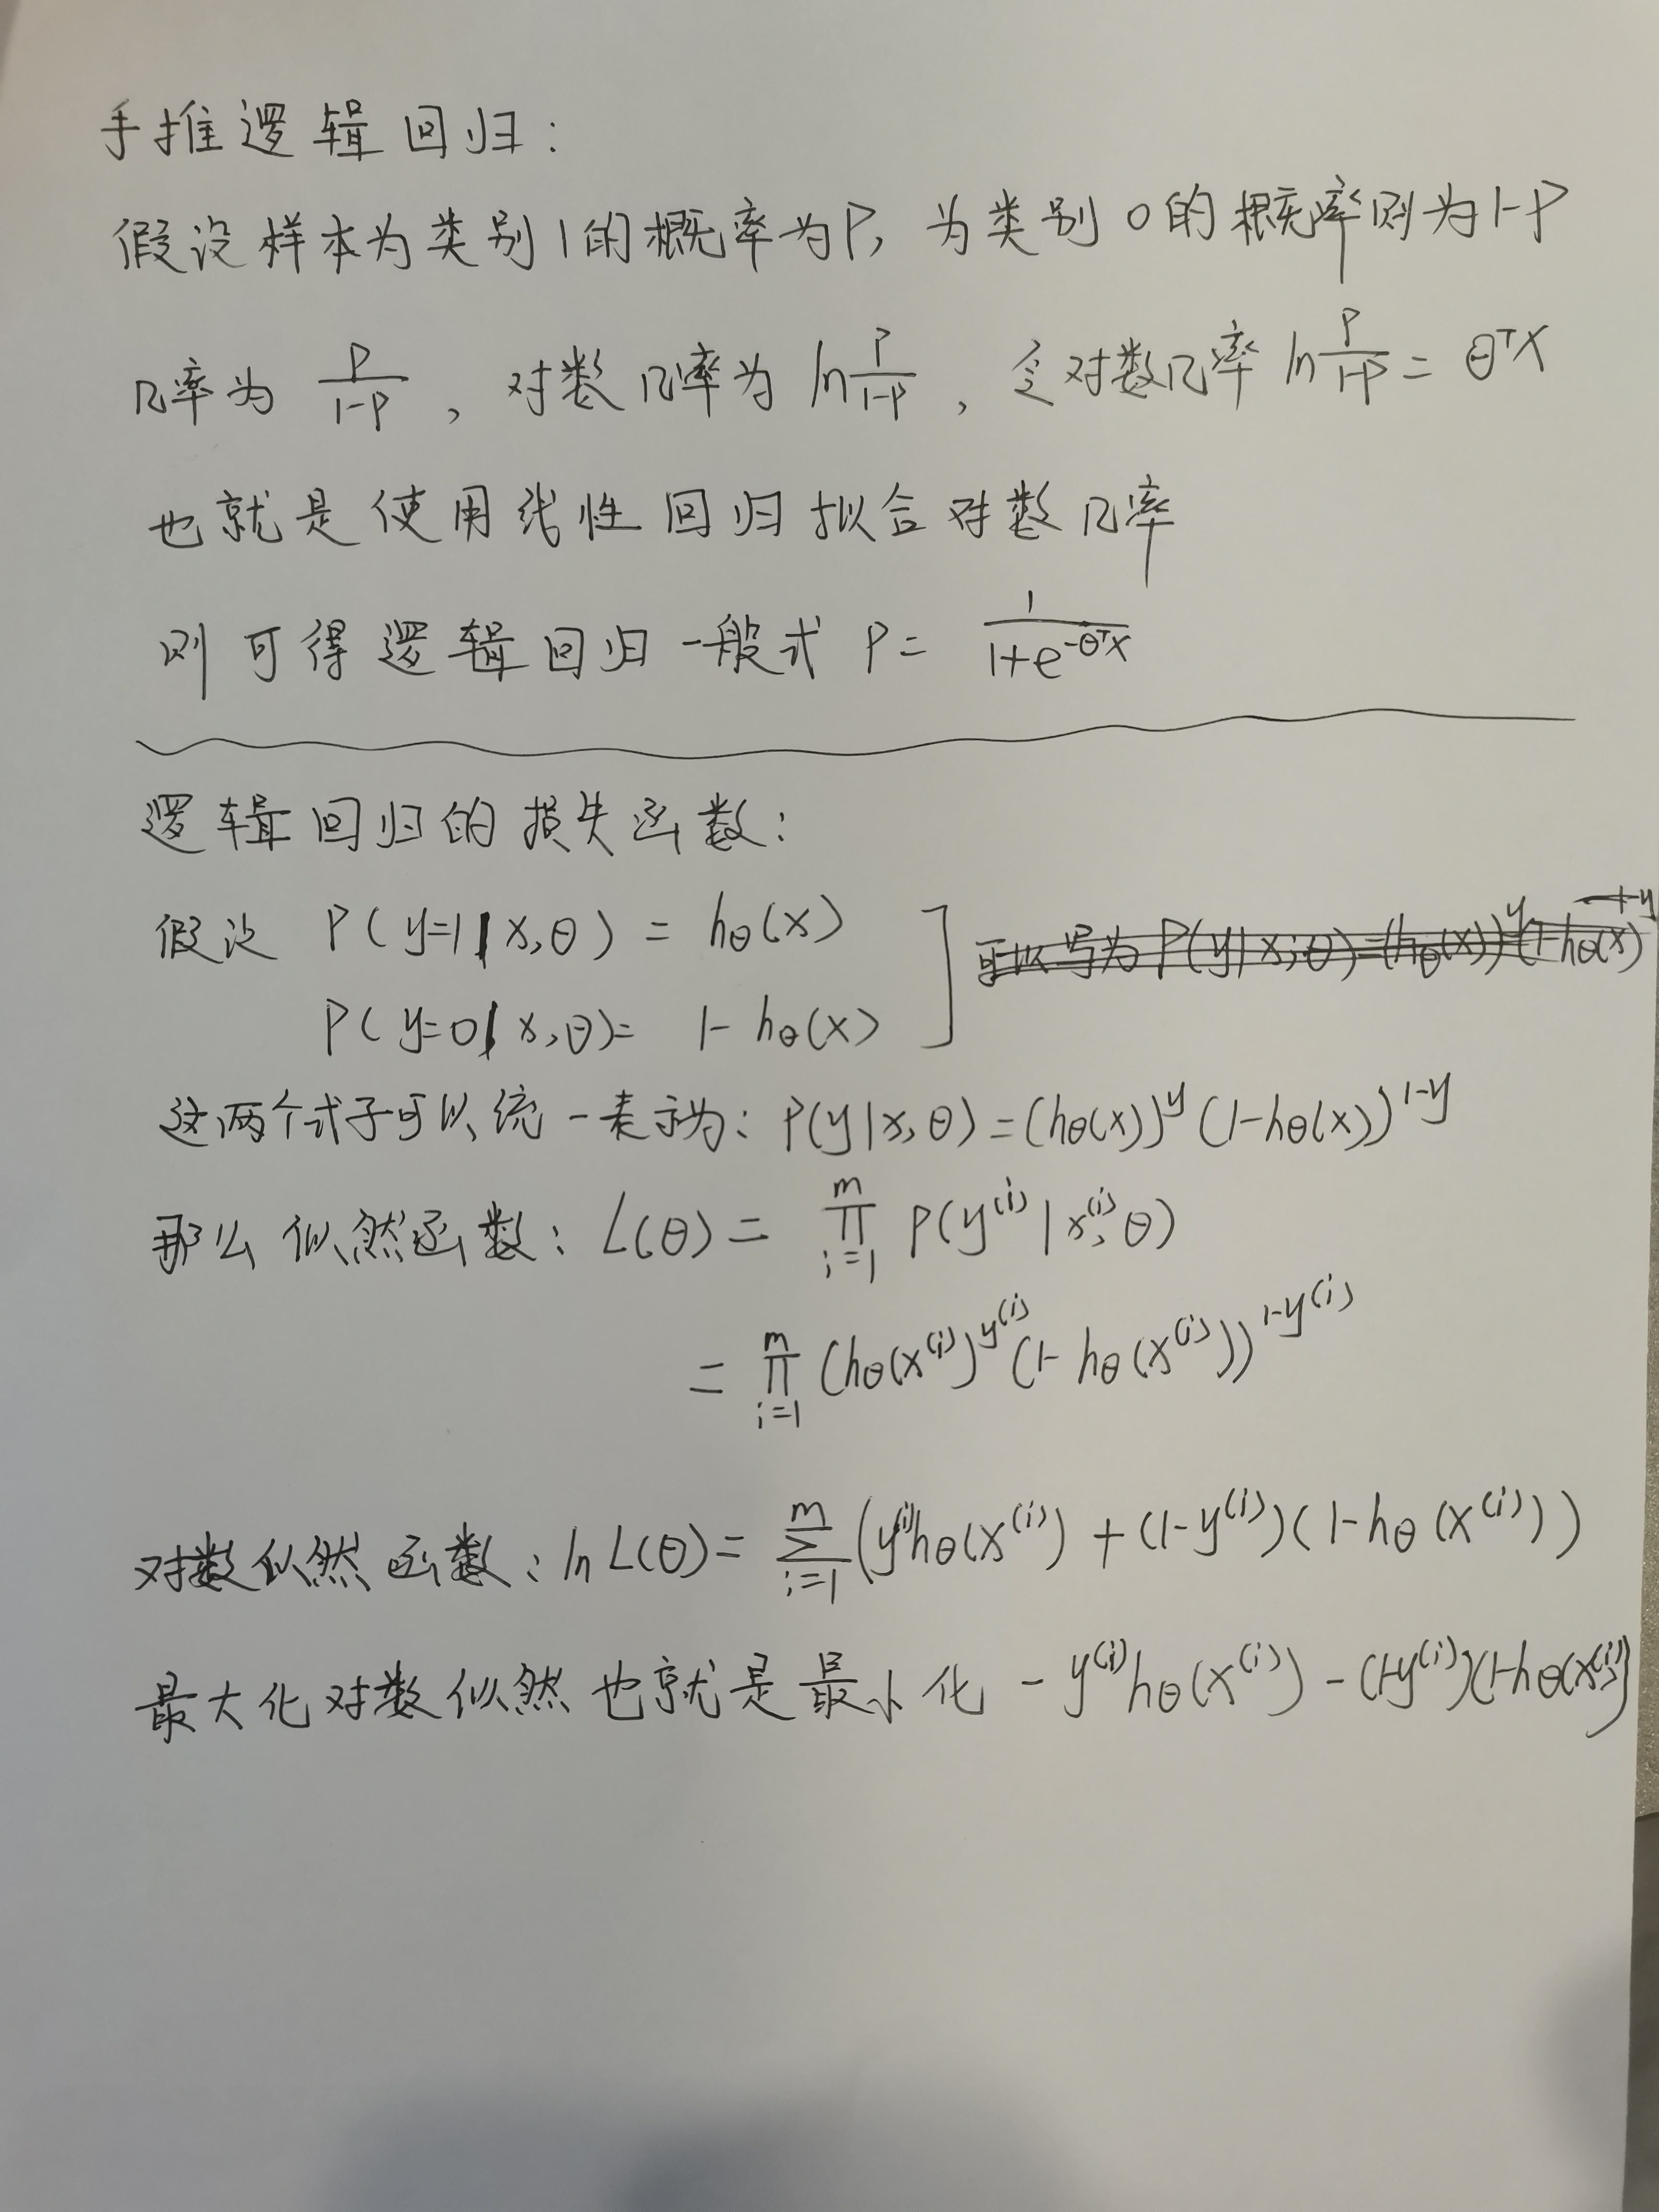 手推逻辑回归:
假设样本为类别1的概率为P, 为类别0的概率则为1-P
几率为 P/(1-P), 对数几率为 ln P/(1-P), 令对数几率 ln P/(1-P) = θᵀx
也就是使用线性回归拟合对数几率
则可得逻辑回归一般式 P = 1/(1+e^(-θᵀx))
逻辑回归的损失函数:
假设 P(y=1|x,θ) = hθ(x) ] 可以写为 P(y|x;θ)=(hθ(x))^y(1-hθ(x))^(1-y)
P(y=0|x,θ)= 1-hθ(x)
这两个式子可以统一表示为: P(y|x,θ)=(hθ(x))^y (1-hθ(x))^(1-y)
那么似然函数: L(θ) = ∏_{i=1}^m P(y^(i)|x^(i),θ)
= ∏_{i=1}^m (hθ(x^(i))^y^(i) (1-hθ(x^(i)))^(1-y^(i))
对数似然函数: ln L(θ) = ∑_{i=1}^m (y^(i)hθ(x^(i)) + (1-y^(i))(1-hθ(x^(i)))
最大化对数似然也就是最小化 -y^(i)hθ(x^(i)) - (1-y^(i))(1-hθ(x^(i))